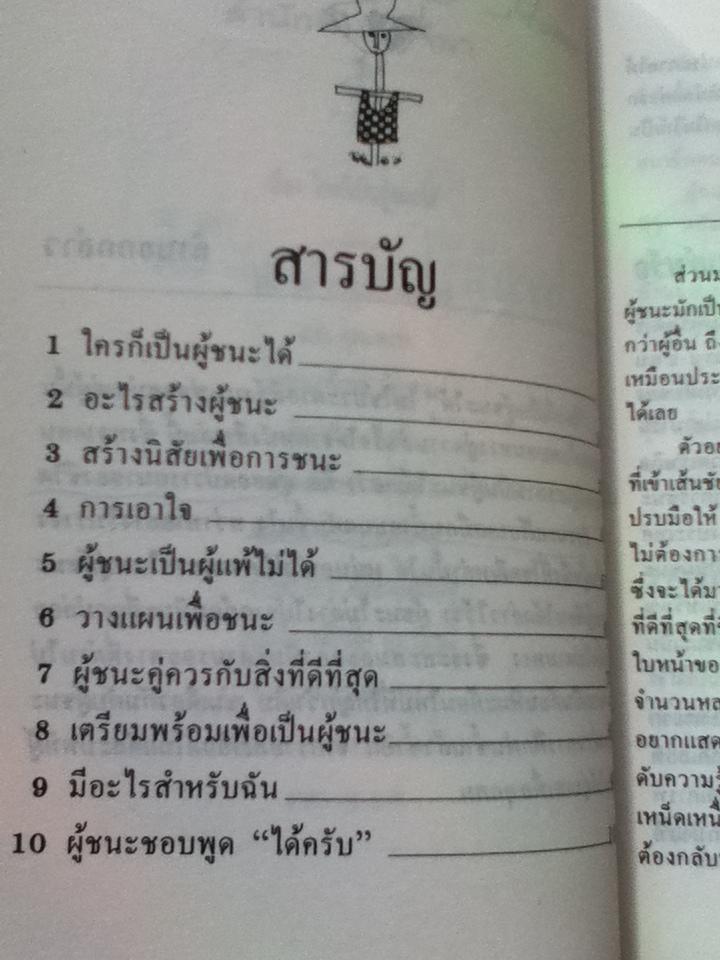 สารบัญ
1 ใครก็เป็นผู้ชนะได้
2 อะไรสร้างผู้ชนะ
3 สร้างนิสัยเพื่อการชนะ
4 การเอาใจ
5 ผู้ชนะเป็นผู้แพ้ไม่ได้
6 วางแผนเพื่อชนะ
7 ผู้ชนะคู่ควรกับสิ่งที่ดีที่สุด
8 เตรียมพร้อมเพื่อเป็นผู้ชนะ
9 มีอะไรสำหรับฉัน
10 ผู้ชนะชอบพูด “ได้ครับ”
ส่วนม
ผู้ชนะมักเป็น
กว่าผู้อื่น ถึง
เหมือนประ
ได้เลย
ตัวอย
ที่เข้าเส้นชัย
ปรบมือให้
ไม่ต้องกา
ซึ่งจะได้มา
ที่ดีที่สุดที่
ใบหน้าขอ
จำนวนหล
อยากแสด
ดับความรู้
เหน็ดเหนื่
ต้องกลับ